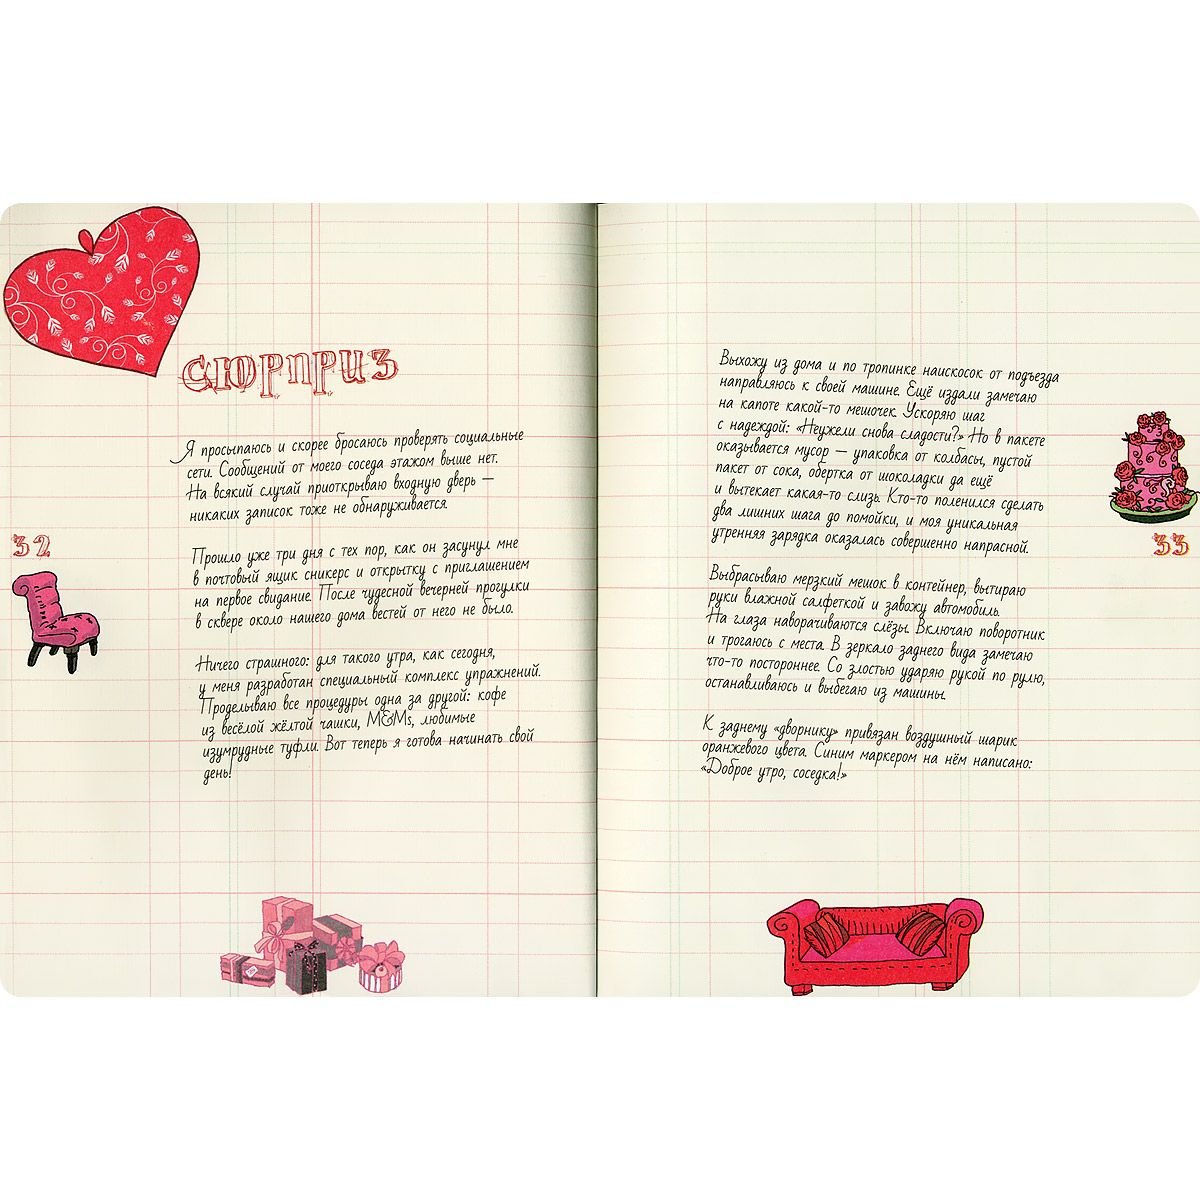 СЮРПРИЗ
Я просыпаюсь и скорее бросаюсь проверять социальные
сети. Сообщений от моего соседа этажом выше нет.
На всякий случай приоткрываю входную дверь —
никаких записок тоже не обнаруживается.
Прошло уже три дня с тех пор, как он засунул мне
в почтовый ящик сникерс и открытку с приглашением
на первое свидание. После чудесной вечерней прогулки
в сквере около нашего дома вестей от него не было.
Ничего страшного: для такого утра, как сегодня,
у меня разработан специальный комплекс упражнений.
Проделываю все процедуры одна за другой: кофе
из весёлой жёлтой чашки, M&Ms, любимые
изумрудные туфли. Вот теперь я готова начинать свой
день!
32
Выхожу из дома и по тропинке наискосок от подъезда
направляюсь к своей машине. Ещё издали замечаю
на капоте какой-то мешочек. Ускоряю шаг
с надеждой: «Неужели снова сладости?» Но в пакете
оказывается мусор — упаковка от колбасы, пустой
пакет от сока, обертка от шоколадки да ещё
и вытекает какая-то слизь. Кто-то поленился сделать
два лишних шага до помойки, и моя уникальная
утренняя зарядка оказалась совершенно напрасной.
Выбрасываю мерзкий мешок в контейнер, вытираю
руки влажной салфеткой и завожу автомобиль.
На глаза наворачиваются слёзы. Включаю поворотник
и трогаюсь с места. В зеркало заднего вида замечаю
что-то постороннее. Со злостью ударяю рукой по рулю,
останавливаюсь и выбегаю из машины.
К заднему «дворнику» привязан воздушный шарик
оранжевого цвета. Синим маркером на нём написано:
«Доброе утро, соседка!»
33